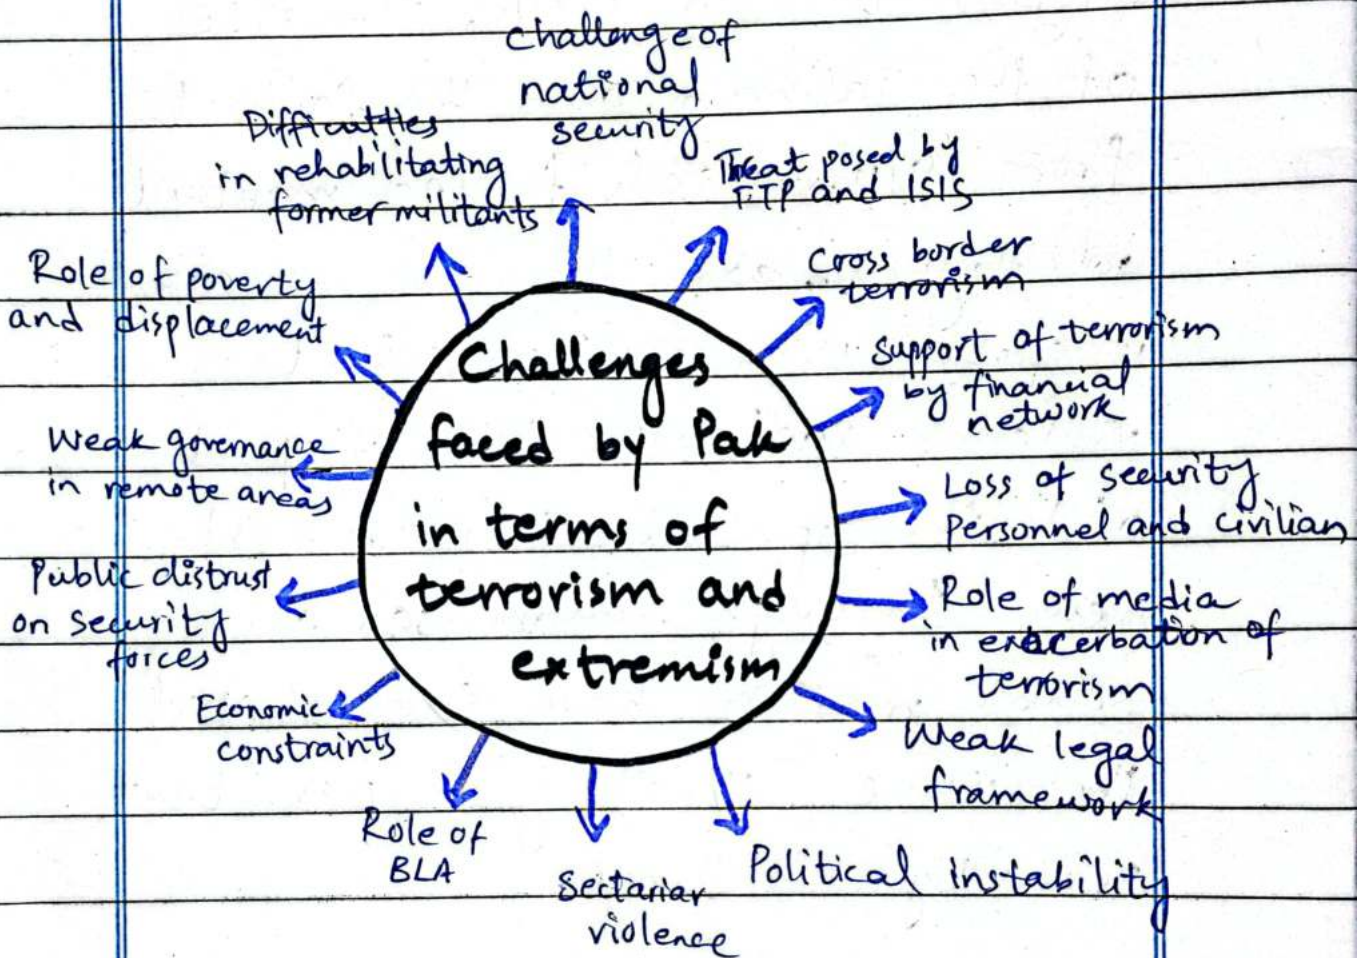 Challenges
faced by Pak
in terms of
terrorism and
extremism
challenge of
national
security
Threat posed by
TTP and ISIS
Cross border
terrorism
Support of terrorism
by financial
network
Loss of security
Personnel and civilian
Role of media
in exacerbation of
terrorism
Weak legal
framework
Political instability
Sectarian
violence
Role of
BLA
Economic
constraints
Public distrust
on security
forces
Weak governance
in remote areas
Role of poverty
and displacement
Difficulties
in rehabilitating
former militants